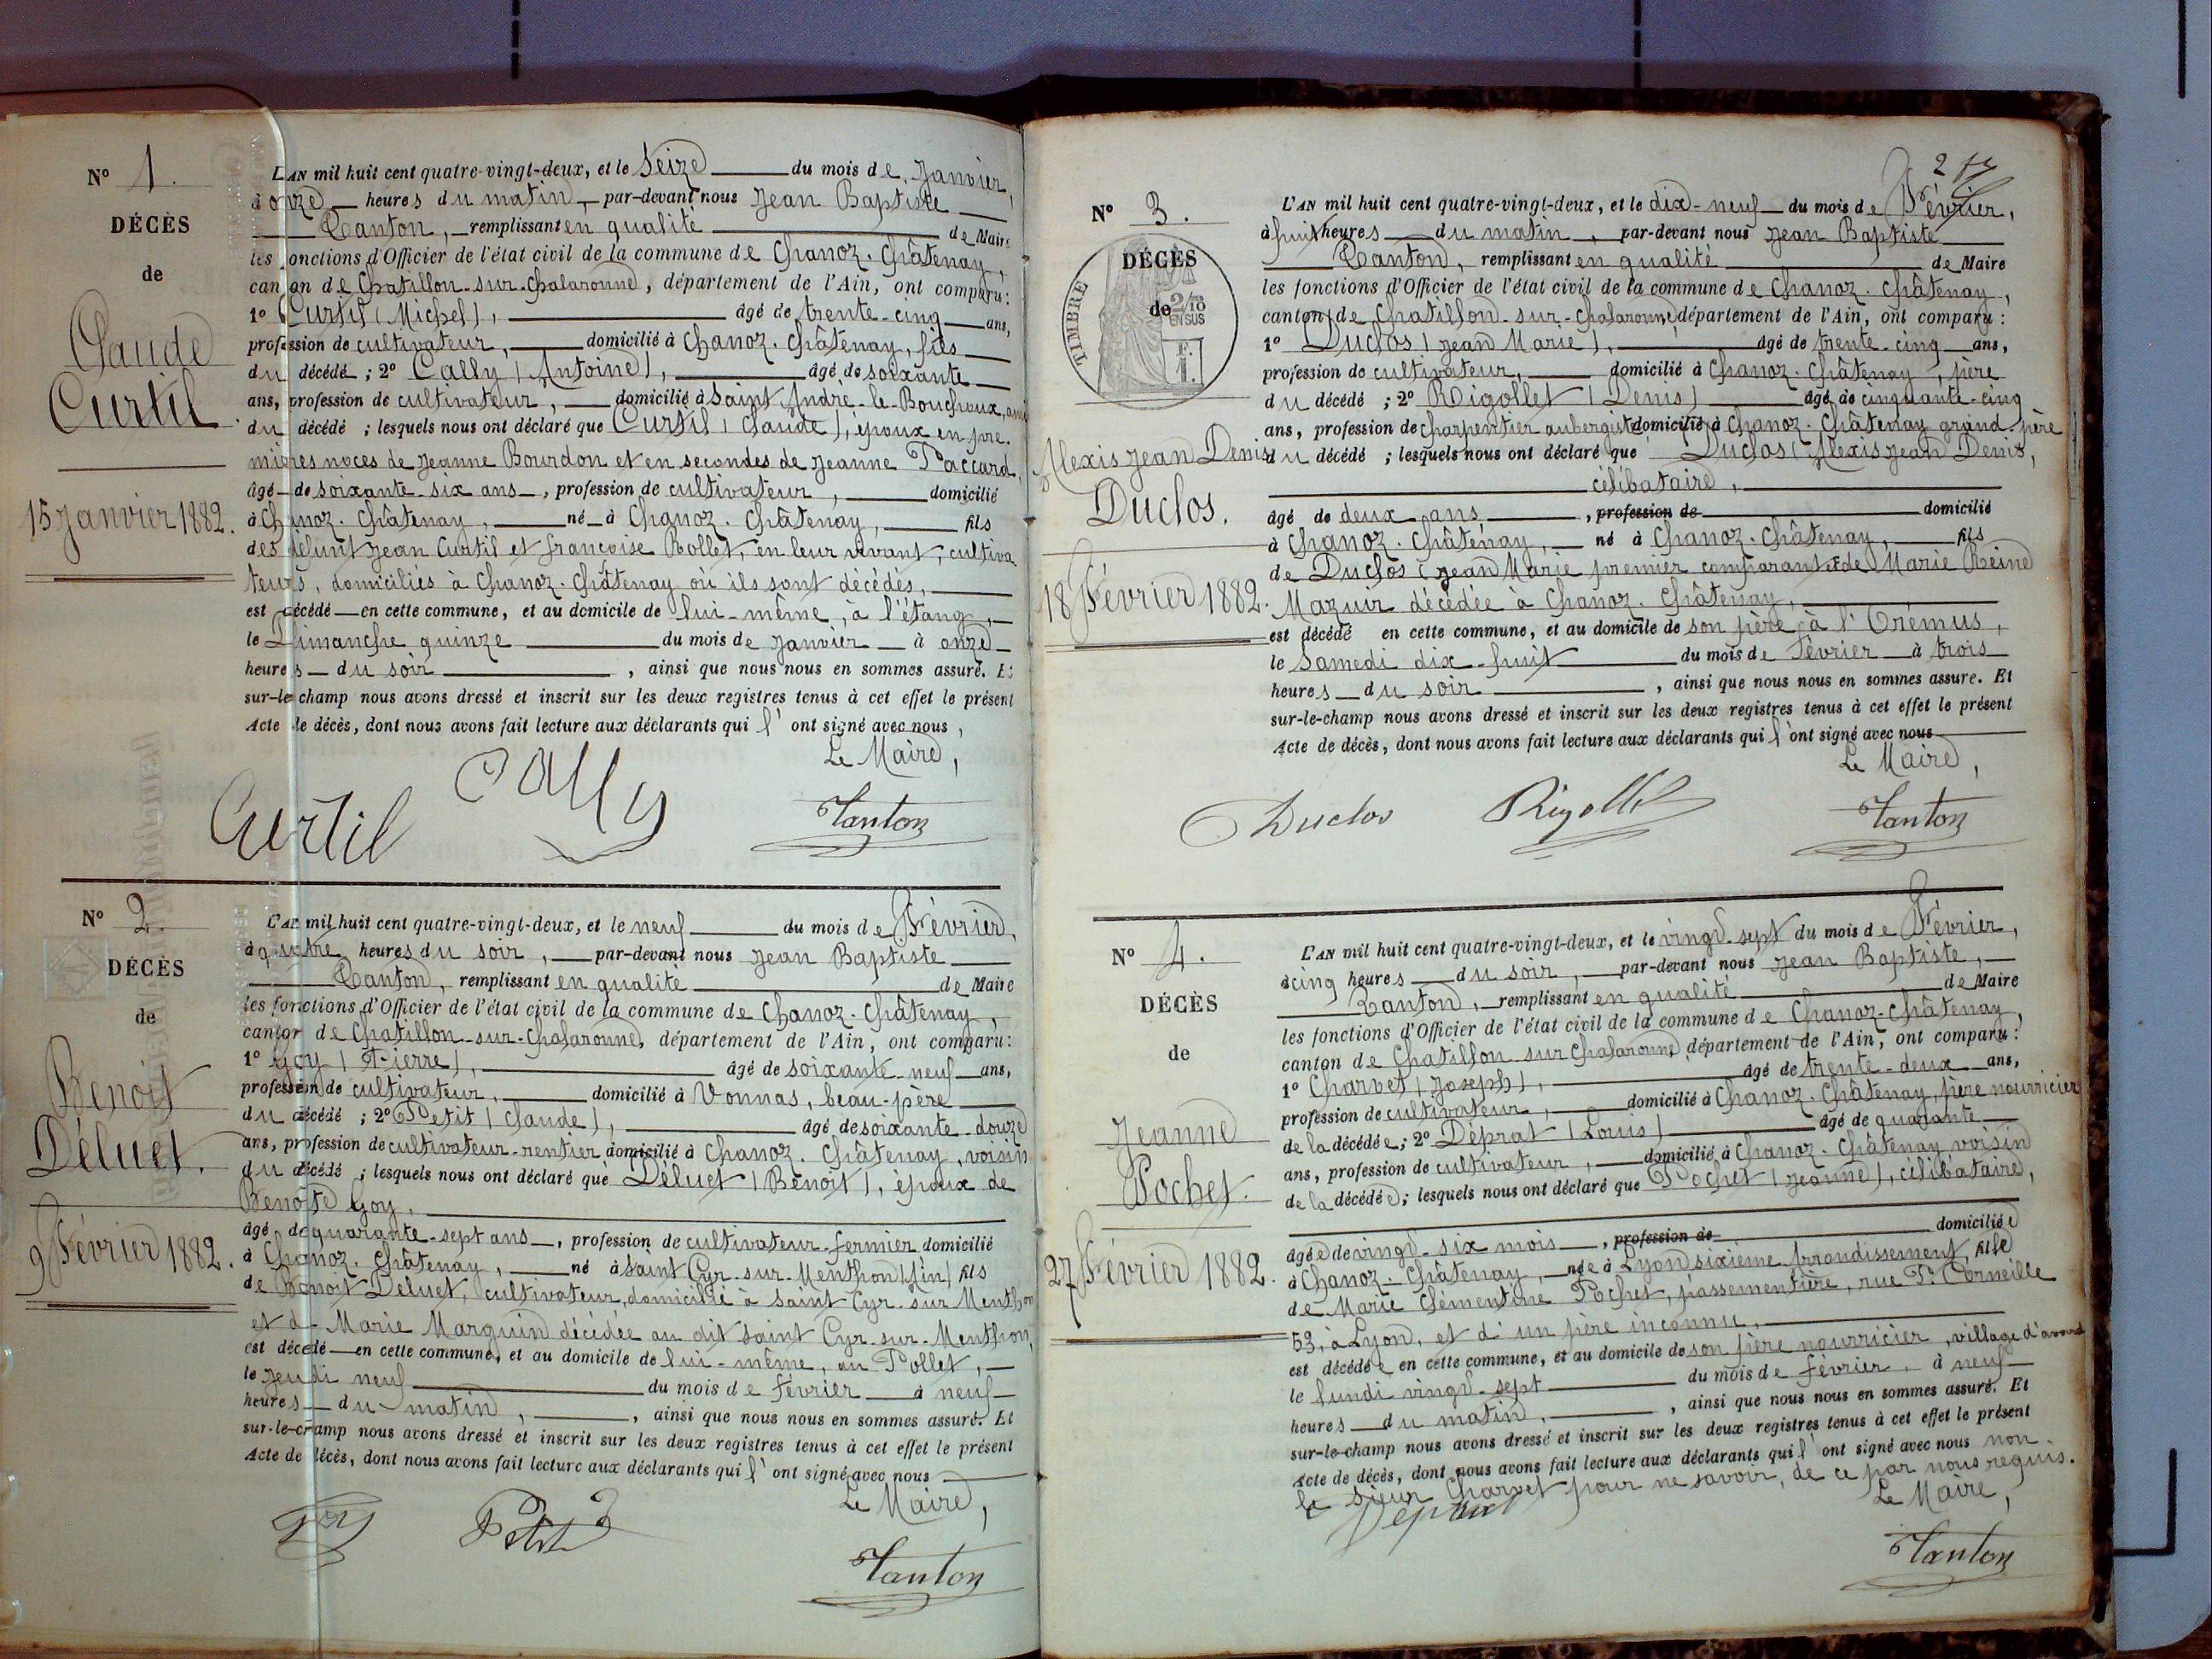 N° 1.
DÉCÈS
de
Claude
Curtil
15 Janvier 1882.
L'AN mil huit cent quatre-vingt-deux, et le Seize du mois de Janvier,
à onze heures du matin, par-devant nous Jean Baptiste
Tanton, remplissant en qualité de Maire
les fonctions d'Officier de l'état civil de la commune de Chanoz-Châtenay,
canton de Chatillon-sur-Chalaronne, département de l'Ain, ont comparu:
1° Curtil (Michel), âgé de trente-cinq ans,
profession de cultivateur, domicilié à Chanoz-Châtenay, fils
du décédé; 2° Cally (Antoine), âgé de soixante
ans, profession de cultivateur, domicilié à Saint André-le-Bouchoux, ami
du décédé; lesquels nous ont déclaré que Curtil (Claude), époux en pre-
mières noces de Jeanne Bourdon et en secondes de Jeanne Paccard,
âgé de soixante-six ans, profession de cultivateur, domicilié
à Chanoz-Châtenay, né à Chanoz-Châtenay, fils
des défunt Jean Curtil et françoise Rollet, en leur vivant, cultiva
teurs, domiciliés à Chanoz-Châtenay où ils sont décédés,
est décédé en cette commune, et au domicile de lui-même, à l'étang,
le Dimanche quinze du mois de Janvier à onze
heures du soir, ainsi que nous nous en sommes assuré. Et
sur-le-champ nous avons dressé et inscrit sur les deux registres tenus à cet effet le présent
Acte de décès, dont nous avons fait lecture aux déclarants qui l'ont signé avec nous,
Le Maire,
Curtil Cally Tanton
N° 2.
DÉCÈS
de
Benoit
Déluet.
9 Février 1882.
L'AN mil huit cent quatre-vingt-deux, et le neuf du mois de Février,
à quatre heures du soir, par-devant nous Jean Baptiste
Tanton, remplissant en qualité de Maire
les fonctions d'Officier de l'état civil de la commune de Chanoz-Châtenay,
canton de Chatillon-sur-Chalaronne, département de l'Ain, ont comparu:
1° Goy (Pierre), âgé de soixante-neuf ans,
profession de cultivateur, domicilié à Vonnas, beau-père
du décédé; 2° Petit (Claude), âgé de soixante-douze
ans, profession de cultivateur-rentier domicilié à Chanoz-Châtenay, voisin
du décédé; lesquels nous ont déclaré que Déluet (Benoit), époux de
Benoite Goy,
âgé de quarante-sept ans, profession de cultivateur-fermier domicilié
à Chanoz-Châtenay, né à Saint Cyr-sur-Menthon (Ain) fils
de Benoit Déluet, cultivateur, domicilié à Saint Cyr-sur-Menthon
et de Marie Marguin décédée au dit Saint Cyr-sur-Menthon,
est décédé en cette commune, et au domicile de lui-même, au Pollet,
le Jeudi neuf du mois de février à neuf
heures du matin, ainsi que nous nous en sommes assuré. Et
sur-le-champ nous avons dressé et inscrit sur les deux registres tenus à cet effet le présent
Acte de décès, dont nous avons fait lecture aux déclarants qui l'ont signé avec nous
Le Maire,
Goy Petit Tanton
N° 3.
DÉCÈS
de
TIMBRE
2/10
EN SUS
Alexis Jean Denis
Duclos.
18 Février 1882.
L'AN mil huit cent quatre-vingt-deux, et le dix-neuf du mois de Février,
à huit heures du matin, par-devant nous Jean Baptiste
Tanton, remplissant en qualité de Maire
les fonctions d'Officier de l'état civil de la commune de Chanoz-Châtenay,
canton de Chatillon-sur-Chalaronne département de l'Ain, ont comparu:
1° Duclos (Jean Marie), âgé de trente-cinq ans,
profession de cultivateur, domicilié à Chanoz-Châtenay, père
du décédé; 2° Rigollet (Denis) âgé de cinquante-cinq
ans, profession de charpentier aubergiste domicilié à Chanoz-Châtenay grand-père
du décédé; lesquels nous ont déclaré que Duclos (Alexis Jean Denis,
célibataire,
âgé de deux ans, profession de domicilié
à Chanoz-Châtenay, né à Chanoz-Châtenay, fils
de Duclos (Jean Marie premier comparant et de Marie Reine
Mazuir décédée à Chanoz-Châtenay,
est décédé en cette commune, et au domicile de son père, à l'Orémus,
le Samedi dix-huit du mois de Février à trois
heures du soir, ainsi que nous nous en sommes assuré. Et
sur-le-champ nous avons dressé et inscrit sur les deux registres tenus à cet effet le présent
Acte de décès, dont nous avons fait lecture aux déclarants qui l'ont signé avec nous
Le Maire,
Duclos Rigollet Tanton
N° 4.
DÉCÈS
de
Jeanne
Pochet.
27 Février 1882.
L'AN mil huit cent quatre-vingt-deux, et le vingt-sept du mois de Février,
à cinq heures du soir, par-devant nous Jean Baptiste,
Tanton, remplissant en qualité de Maire
les fonctions d'Officier de l'état civil de la commune de Chanoz-Châtenay,
canton de Chatillon sur Chalaronne département de l'Ain, ont comparu:
1° Charvet (Joseph), âgé de trente-deux ans,
profession de cultivateur, domicilié à Chanoz-Châtenay, père nourricier
de la décédée; 2° Déprat (Louis) âgé de quarante
ans, profession de cultivateur, domicilié à Chanoz-Châtenay voisin
de la décédée; lesquels nous ont déclaré que Pochet (Jeanne), célibataire,
âgée de vingt-six mois, profession de domiciliée
à Chanoz-Châtenay, née à Lyon sixième arrondissement, fille
de Marie Clémentine Pochet, passementière, rue P. Corneille
53, à Lyon, et d'un père inconnu,
est décédée en cette commune, et au domicile de son père nourricier, village d'
le lundi vingt-sept du mois de février, à neuf
heures du matin, ainsi que nous nous en sommes assuré. Et
sur-le-champ nous avons dressé et inscrit sur les deux registres tenus à cet effet le présent
Acte de décès, dont nous avons fait lecture aux déclarants qui l'ont signé avec nous non
le sieur Charvet pour ne savoir, de ce par nous requis.
Le Maire,
Deprat Tanton